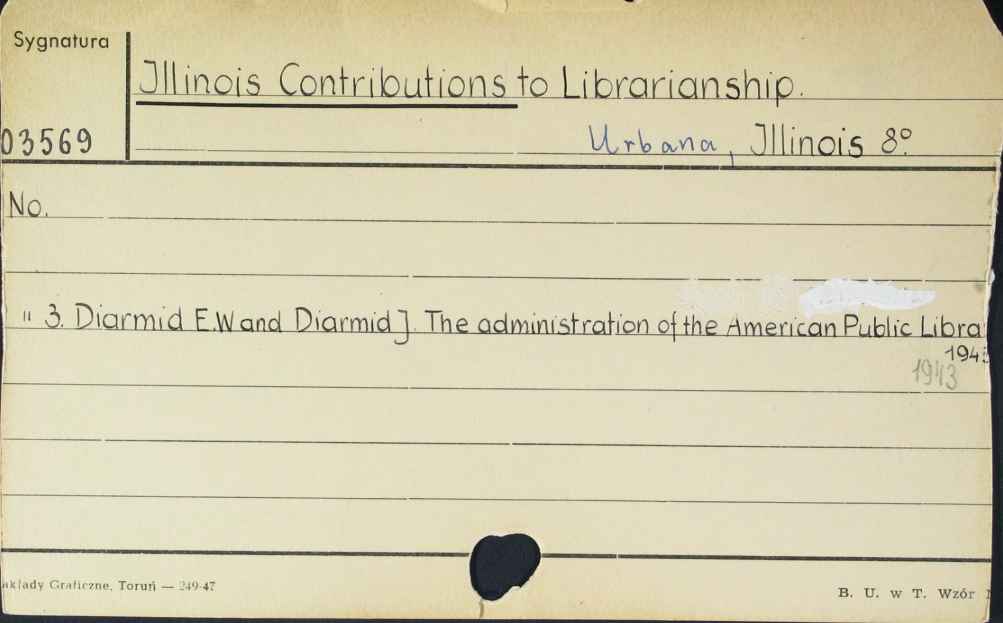 Sygnatura
Illinois Contributions to Librarianship.
03569
Urbana, Illinois 8°
No.
" 3. Diarmid E.W and Diarmid J. The administration of the American Public Libra
194
1943
akłady Graficzne, Toruń — 249-47
B. U. w T. Wzór